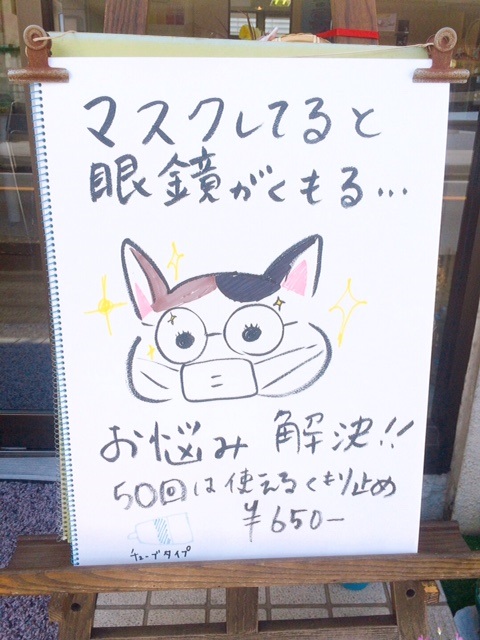 マスクしてると
眼鏡がくもる…
お悩み 解決!!
50回は使えるくもり止め
¥650-
チューブタイプ